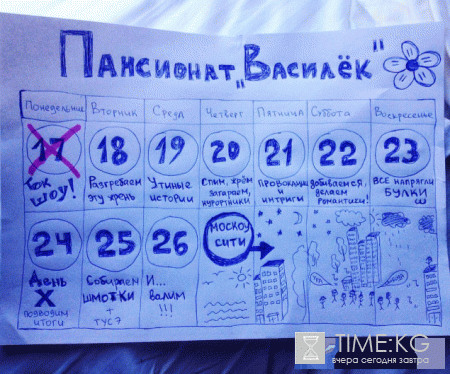 Пансионат „Василёк"
Понедельник Вторник Среда Четверг Пятница Суббота Воскресенье
17 18 19 20 21 22 23
Ток шоу!
Разгребаем
эту хрень
Утиные
истории
Спим, жрём
загораем,
курортники
Провокации
и
интриги
добиваемся,
делаем
романтику!
Все напрягли
булки
24 25 26
Москоу
сити
День
X
подводим
итоги
Собираем
шмотки
+
тус7
И...
валим
!!!
TIME:KG
вчера сегодня завтра